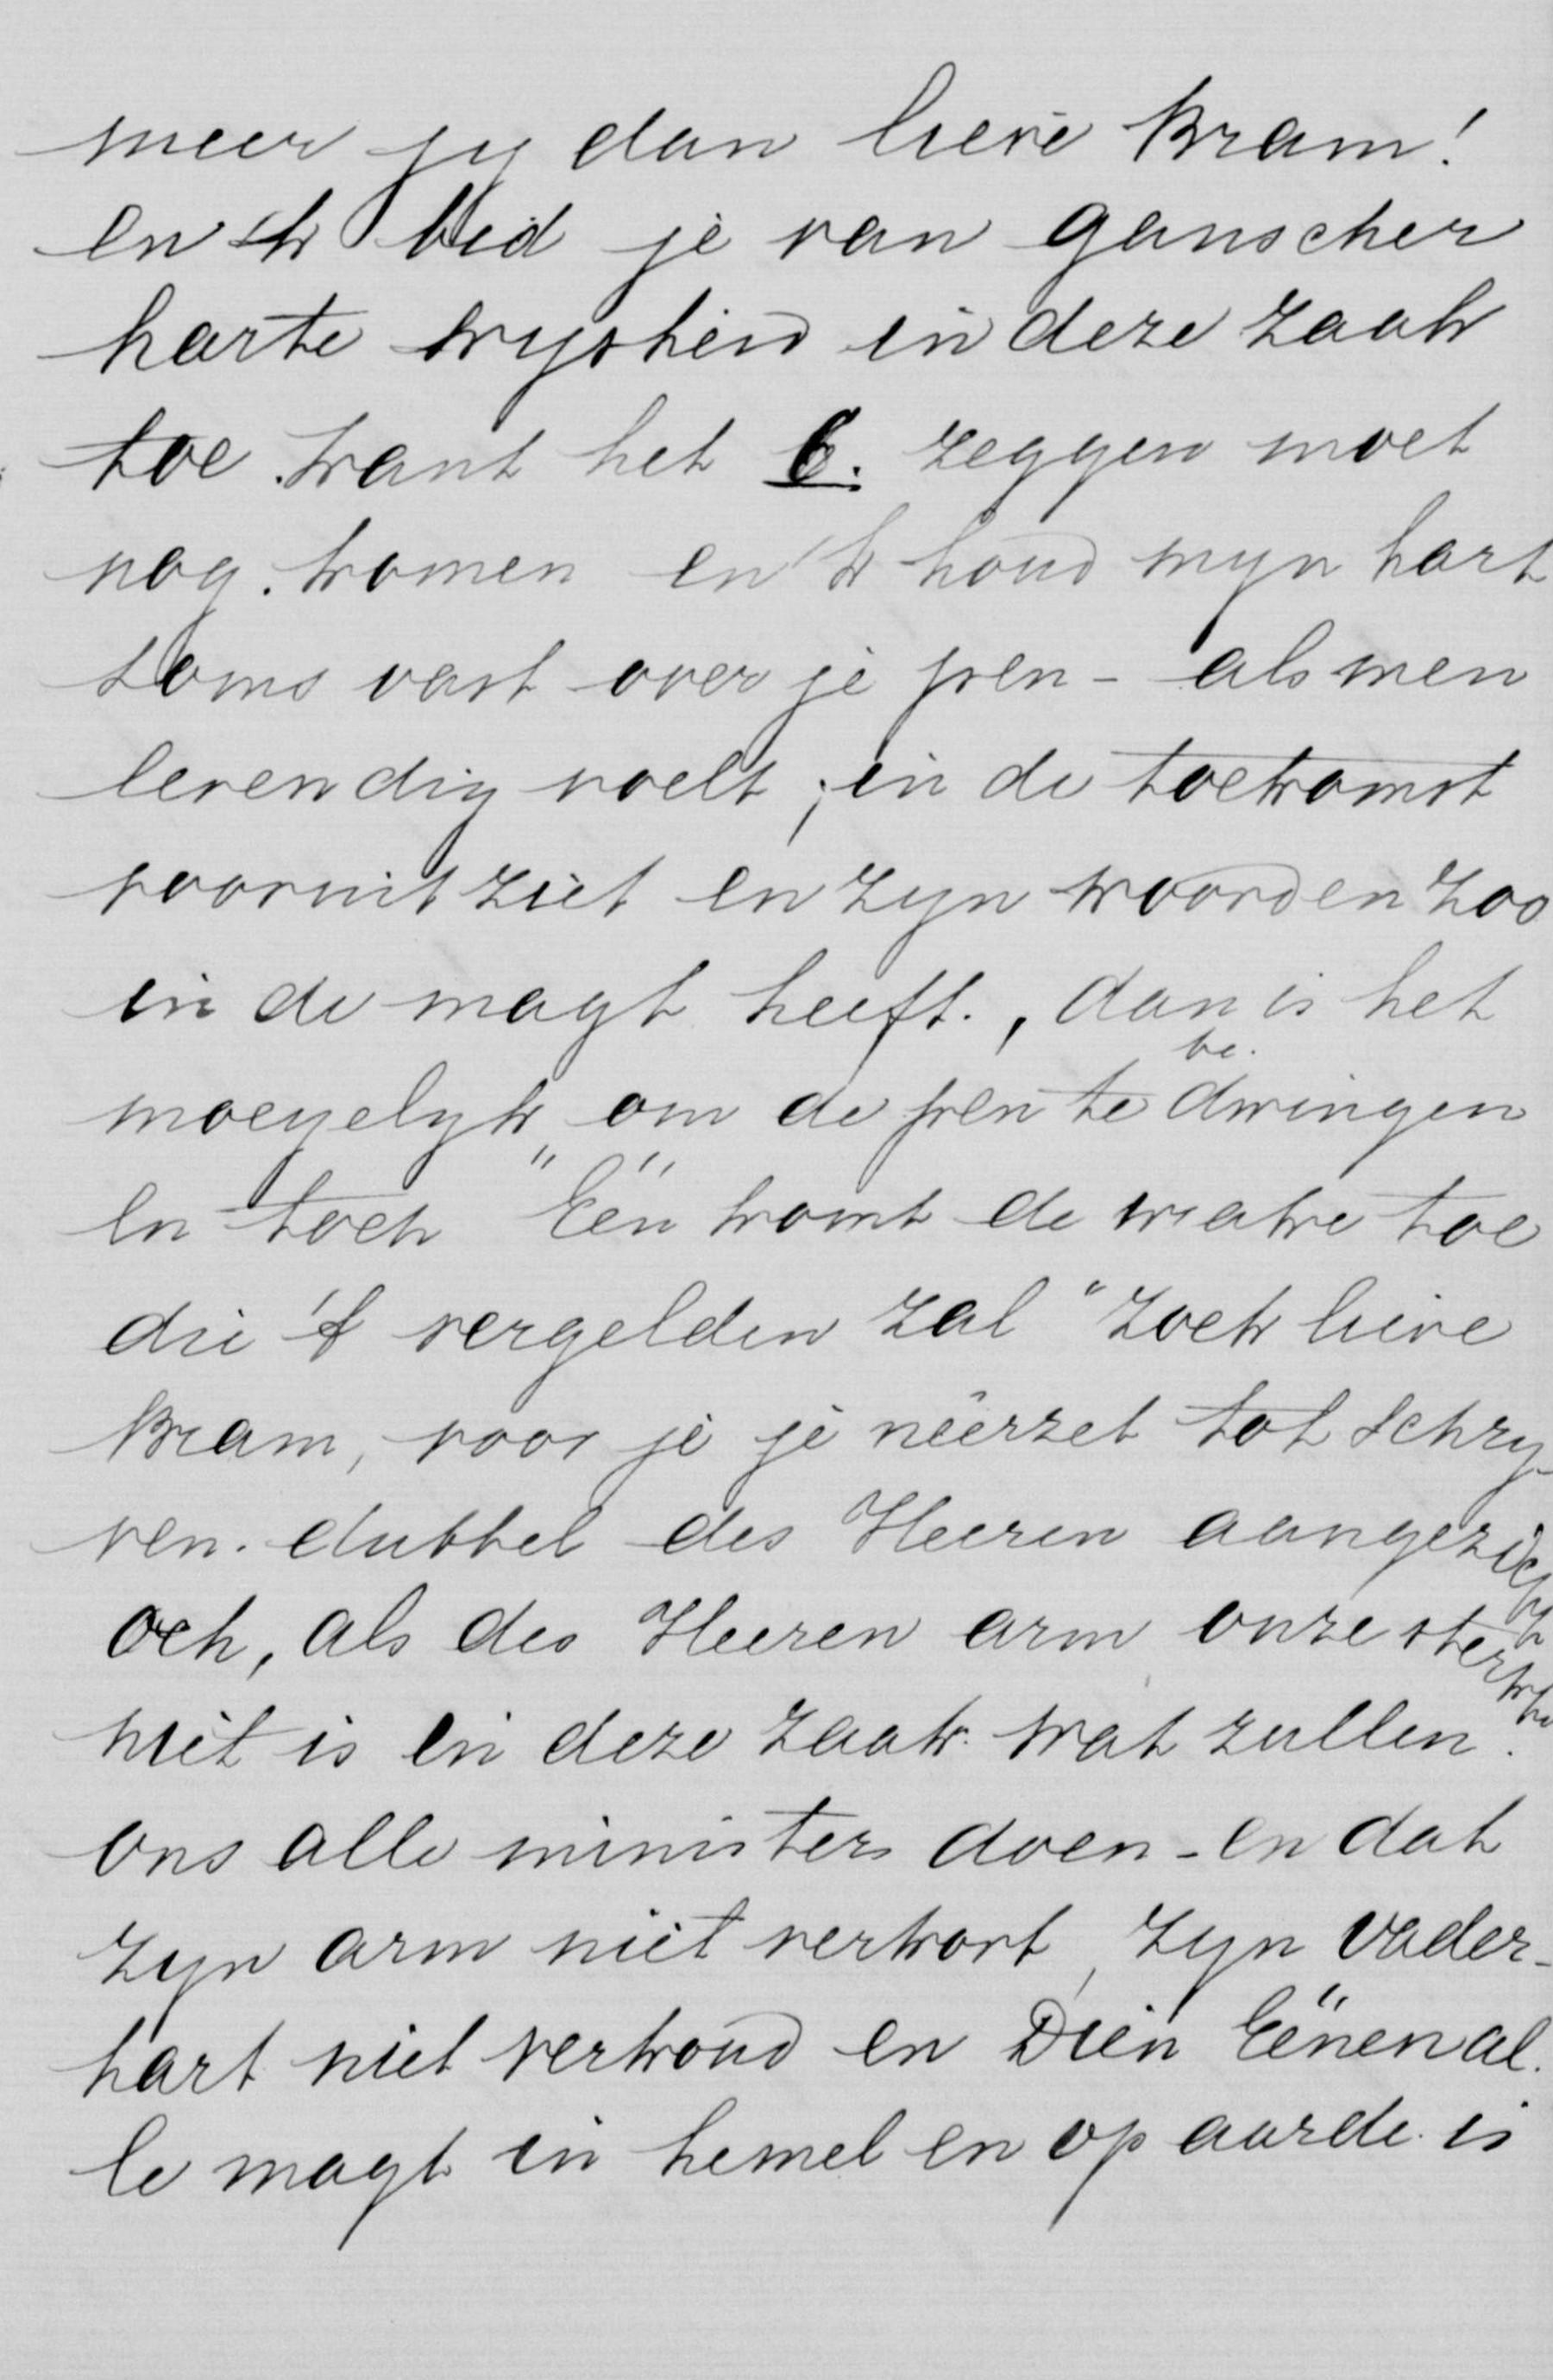 meer jy dan lieve Bram!
en 'k bid je van ganscher
harte wysheid in deze zaak
toe. want het C. zeggen moet
nog. komen en 'k houd myn hart
soms vast over je pen - als men
levendig voelt, in de toekomst
vooruit ziet en zyn woorden zoo
in de magt heeft., dan is het
moeyelyk om de pen te bedwingen
en toch "Eén komt de wrake toe
die 't vergelden zal" Zoek lieve
Bram, voor je je nêerzet tot schry-
ven. dubbel des Heeren aangezicht
och, als des Heeren arm onze sterkte
niet is in deze zaak. wat zullen.
ons alle ministers doen - en dat
zyn arm niet verkort, zyn vader-
hart niet verkoud en Dien Eénen al.
le magt in hemel en op aarde is